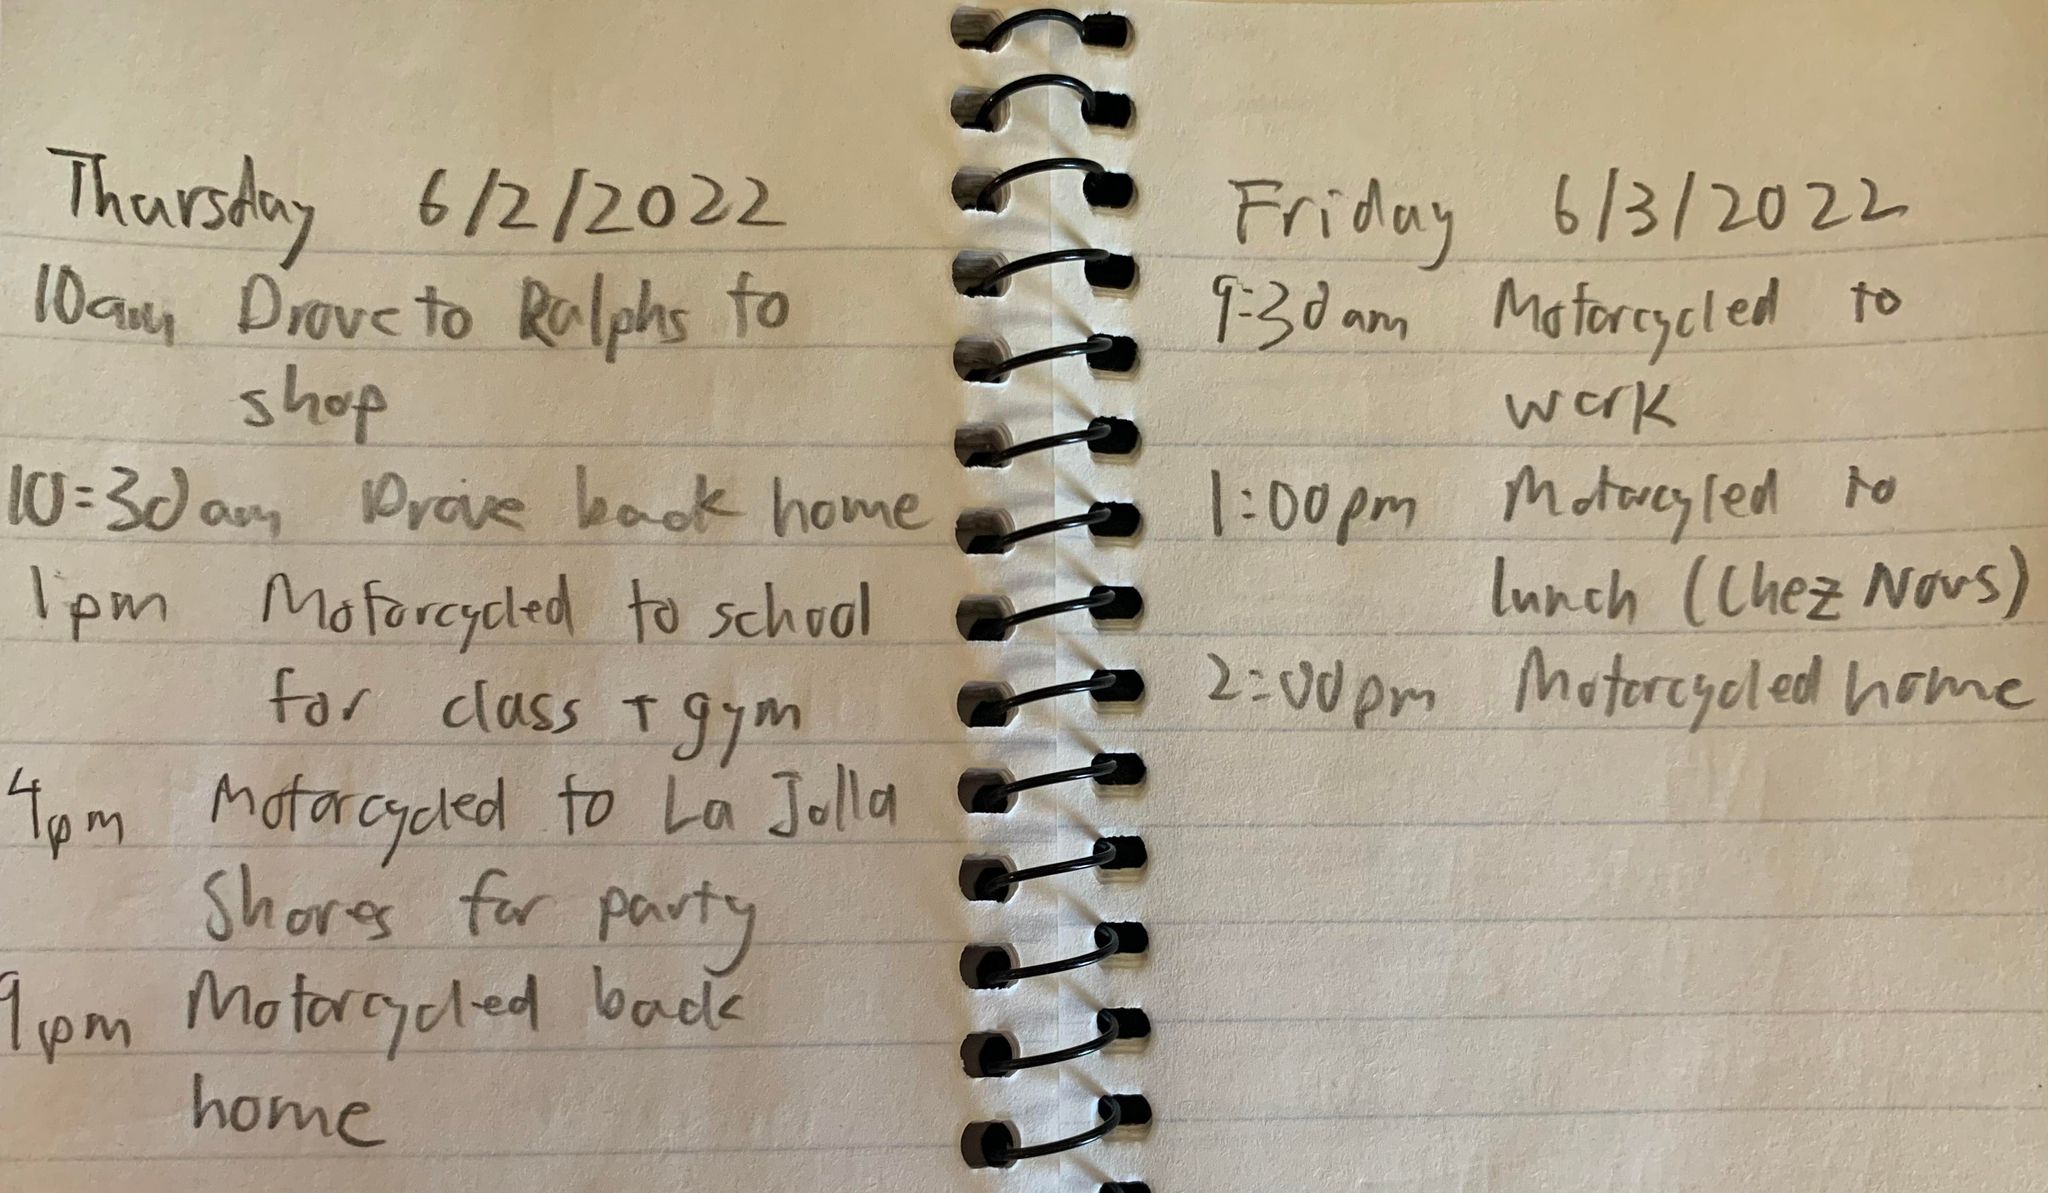 Thursday 6/2/2022
10am Drove to Ralphs to
shop
10:30am Drove back home
1pm Motorcycled to school
for class + gym
4pm Motorcycled to La Jolla
Shores for party
9pm Motorcycled back
home
Friday 6/3/2022
9:30am Motorcycled to
work
1:00pm Motorcycled to
lunch (Chez Nous)
2:00pm Motorcycled home